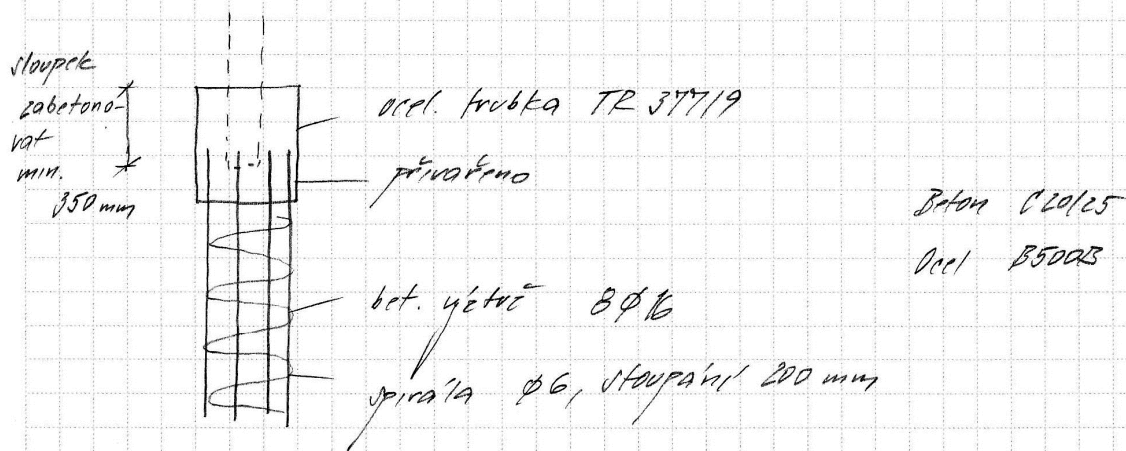 sloupek
zabetono-
vat
min.
350 mm
ocel. trubka TR 377/9
přivařeno
bet. výztuž 8 φ 16
spirála φ6, stoupání 200 mm
Beton C20/25
Ocel B500B